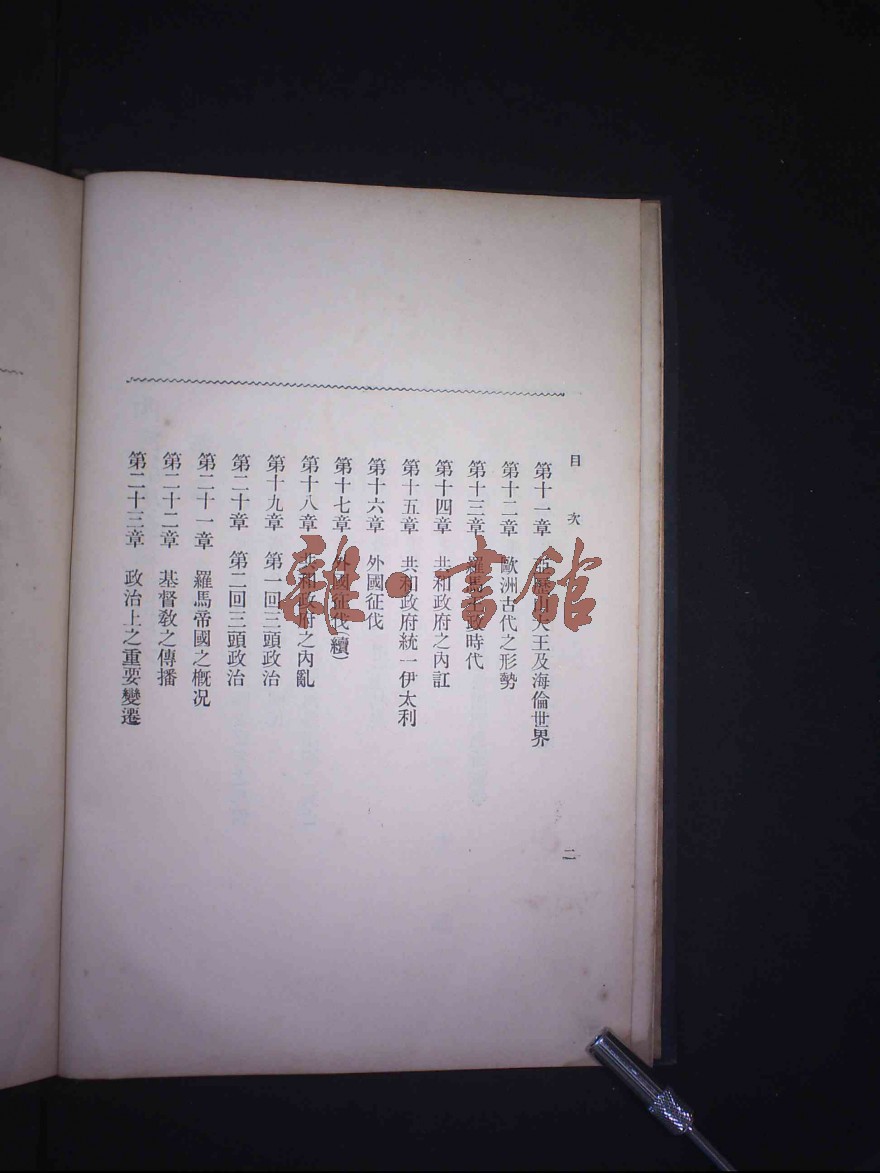 目次
第十一章 亞歷山大王及海倫世界
第十二章 歐洲古代之形勢
第十三章 羅馬王政時代
第十四章 共和政府之內訌
第十五章 共和政府統一伊太利
第十六章 外國征伐
第十七章 外國征伐(續)
第十八章 共和政府之內亂
第十九章 第一回三頭政治
第二十章 第二回三頭政治
第二十一章 羅馬帝國之概況
第二十二章 基督教之傳播
第二十三章 政治上之重要變遷
二
雜·書館